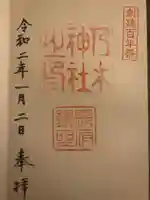 創建百年祭
乃木
神社
之印
令和二年一月二日 奉拝